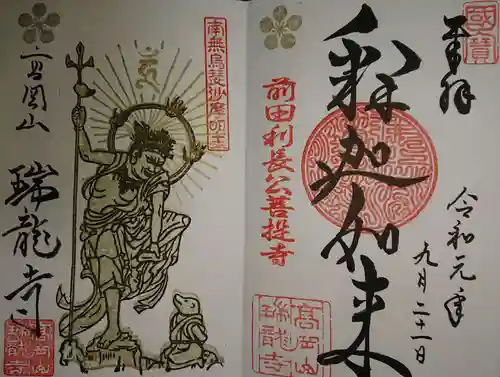 國寶
奉拝
令和元年
九月二十一日
釈迦如来
前田利長公菩提寺
高岡山
瑞龍寺
南無烏瑟沙摩明王
高岡山
瑞龍寺
高岡山
瑞龍寺